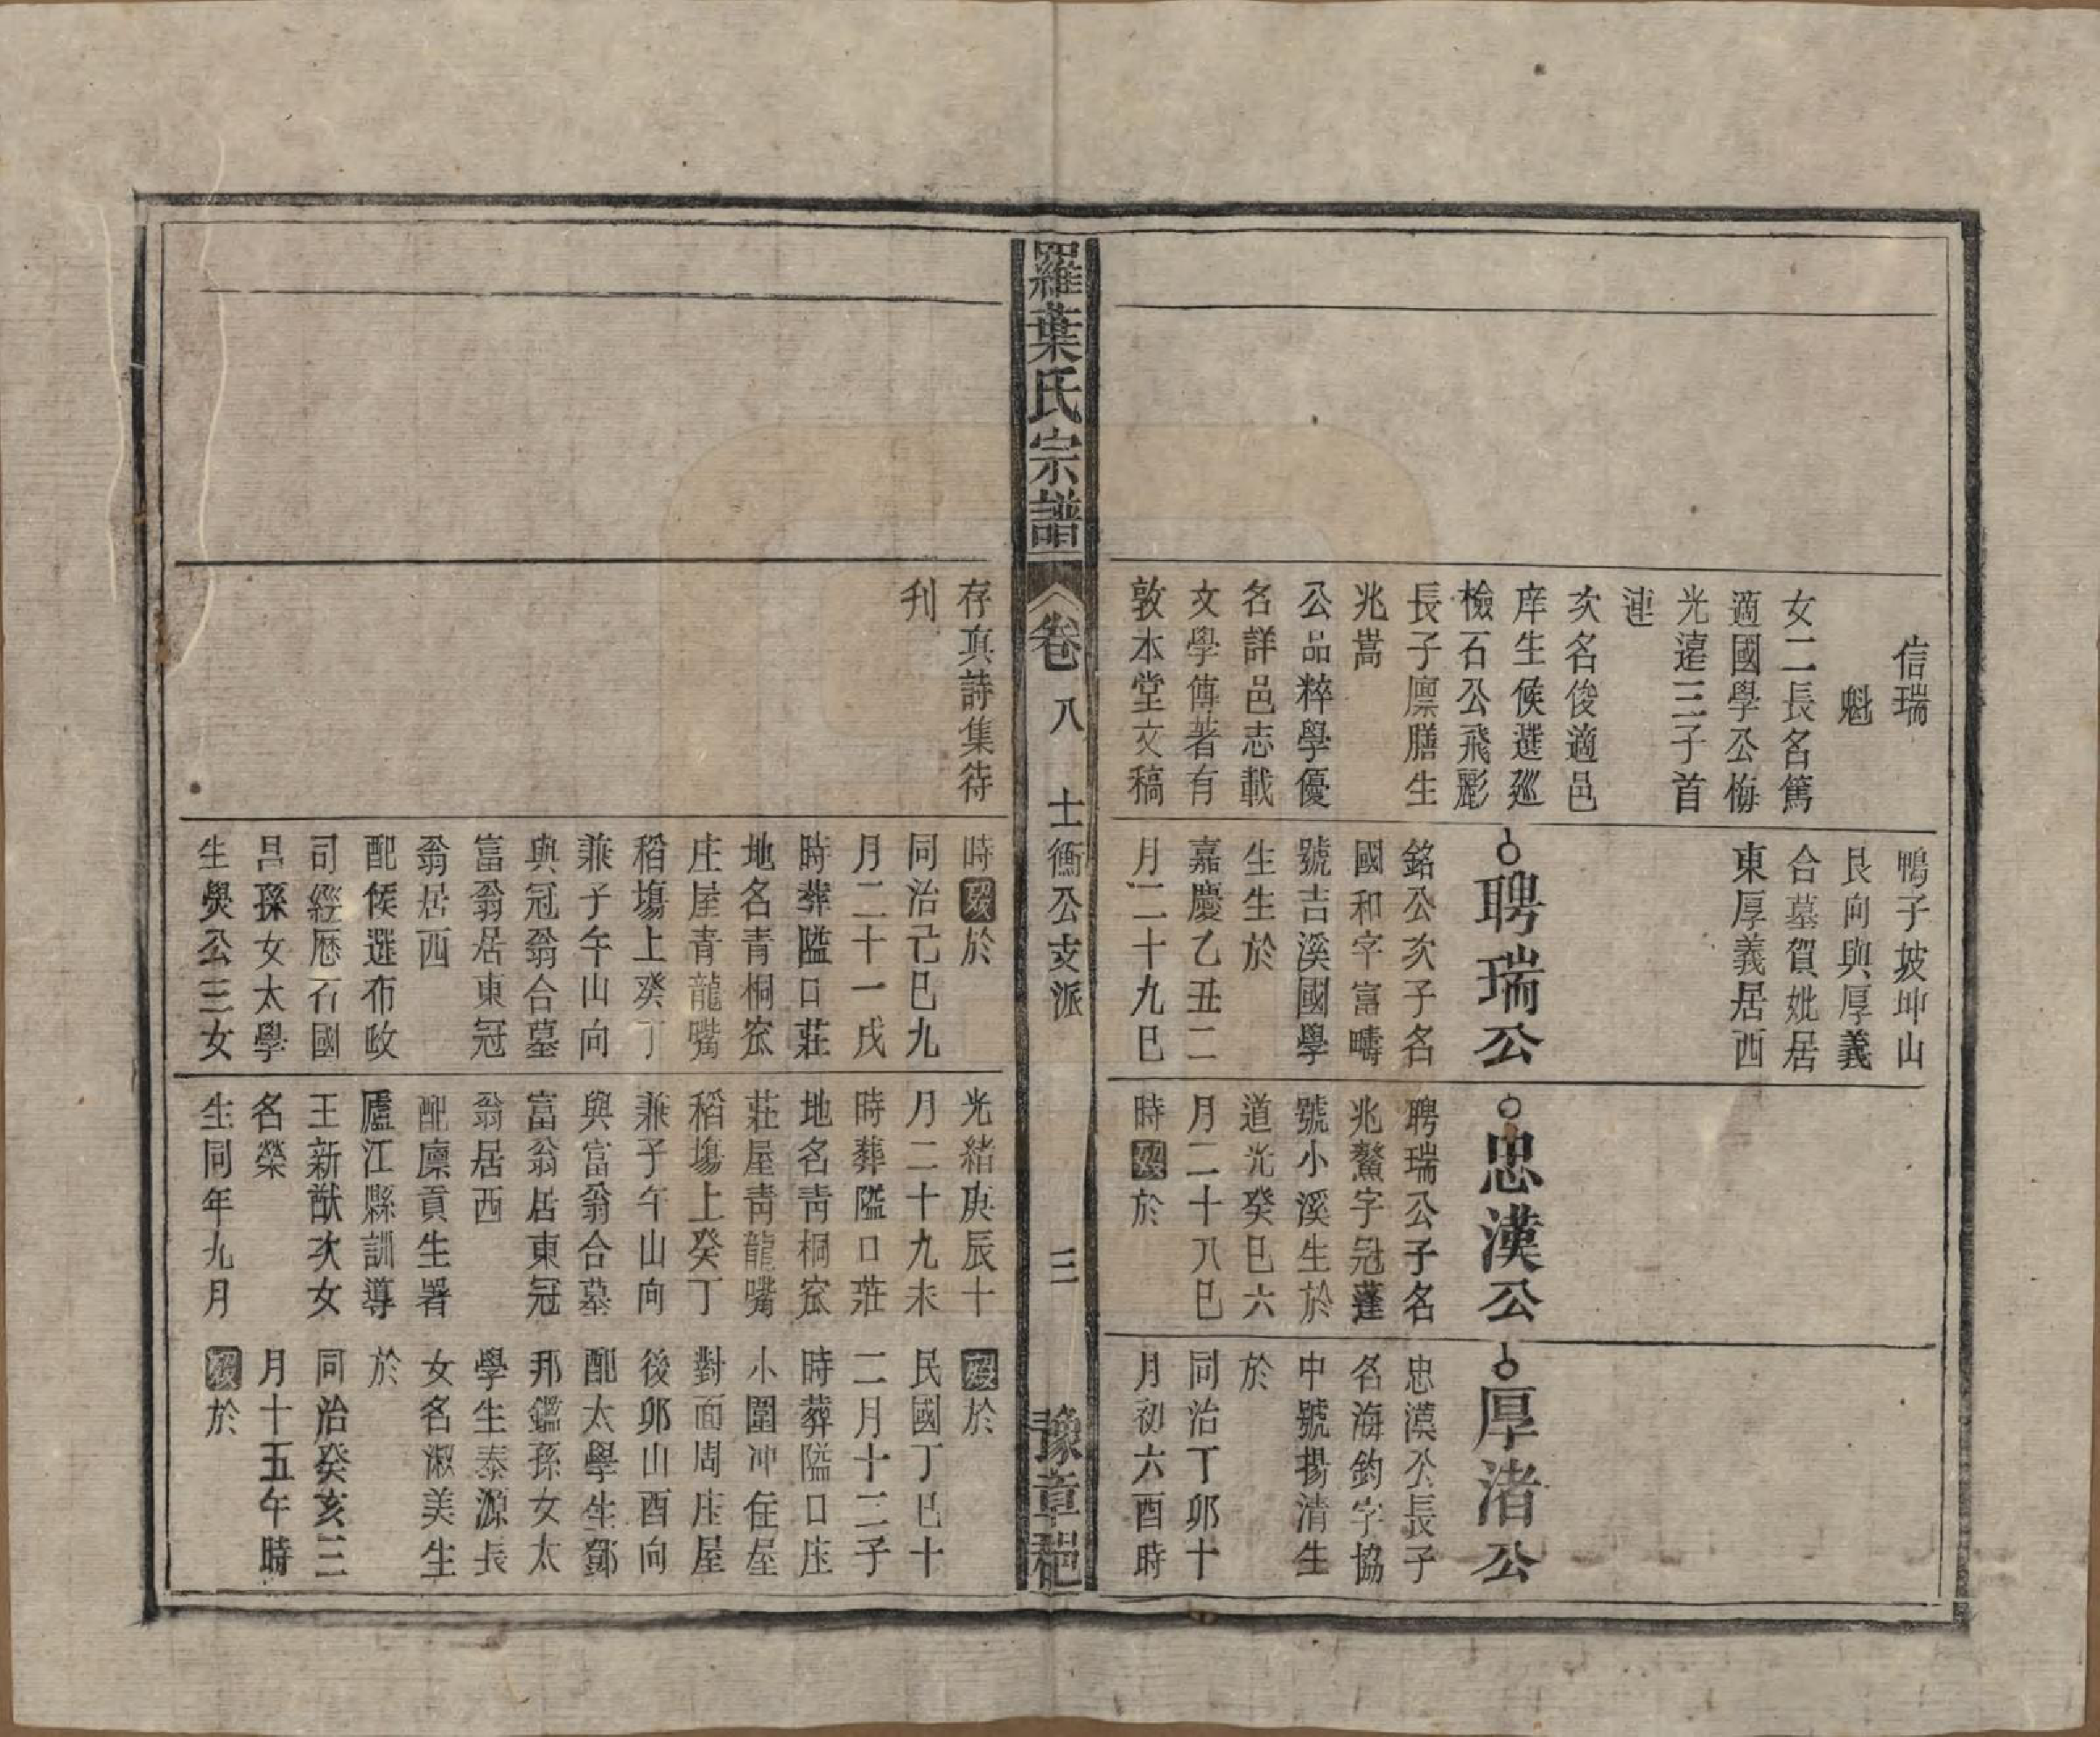 信瑞
魁
女二長名篤
適國學公梅
光遠三子首
連
次名俊適邑
庠生候選巡
檢石公飛彪
長子廩膳生
兆嵩
公品粹學優
名詳邑志載
文學傳著有
敦本堂文稿
鴨子坡坤山
艮向與厚義
合墓賀妣居
東厚義居西
聘瑞公
銘公次子名
國和字富疇
號吉溪國學
生生於
嘉慶乙丑二
月二十九巳
忠漢公
聘瑞公子名
兆鰲字冠蓬
號小溪生於
道光癸巳六
月二十八巳
時歿於
厚渚公
忠漢公長子
名海鈞字協
中號揚清生
於
同治丁卯十
月初六酉時
羅葉氏宗譜
卷八
士衡公支派
三
豫章郡
存真詩集待
刋
時歿於
同治己巳九
月二十一戌
時葬隘口莊
地名青桐窊
庄屋青龍嘴
稻塲上癸丁
兼子午山向
與冠翁合墓
富翁居東冠
翁居西
配候選布政
司經歷石國
呂孫女太學
生奐公三女
光緒庚辰十
月二十九未
時葬隘口莊
地名青桐窊
莊屋青龍嘴
稻塲上癸丁
兼子午山向
與富翁合墓
富翁居東冠
翁居西
配廩貢生署
廬江縣訓導
王新猷次女
名榮
生同年九月
歿於
民國丁巳十
二月十二子
時葬隘口庄
小圍冲住屋
對面周庄屋
後卯山酉向
配太學生鄧
邦鑑孫女太
學生泰源長
女名淑美生
於
同治癸亥三
月十五午時
歿於